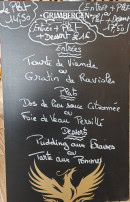 Le Plat
14,50
Entrée + Plat
ou
Plat + Dessert
17,50
GRIMBERGEN
Entrée + Plat
+ Dessert
Entrées
Tourte de Viande
ou
Gratin de Ravioles
Plat
Dos de Lieu sauce Citronnée
ou
Foie de Veau Persillé
Desserts
Pudding aux
ou
Tarte aux Pommes